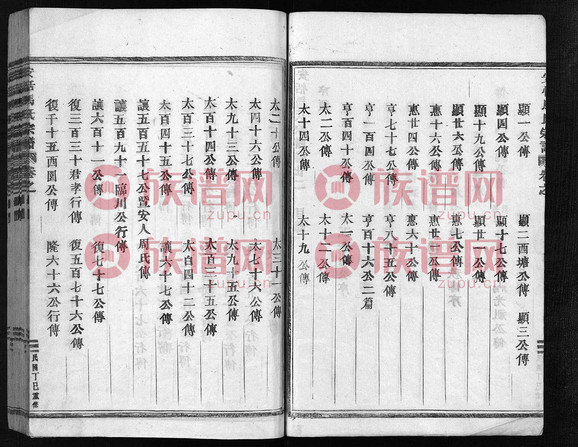 顯一公傳 顯二西塘公傳 顯三公傳
顯四公傳 顯十七公傳
顯十九公傳 顯廿一公傳
顯廿六公傳 惠七公傳
惠十六公傳 惠廿二公傳
惠廿八公傳 惠六十公傳
亨七十七公傳 亨八十五公傳
亨一百四公傳 亨百十六公二篇
太一公傳
太十二公傳
太十四公傳 太十九公傳
太二十公傳 太三十公傳
太四十六公傳 太七十六公傳
太九十三公傳 太九十五公傳
太百十四公傳
太百三十七公傳 太百四十二公傳
太百四十五公傳 讓六十七公傳
讓五百五十七公暨安人周氏傳
讓五百九十一臨川公行傳
讓六百十一公傳 復七十七公傳
復三百三十君孝行傳 復五百七十六公傳
復千十五西園公傳 隆六十六公行傳
民國丁巳重修
族谱网
zupu.cn